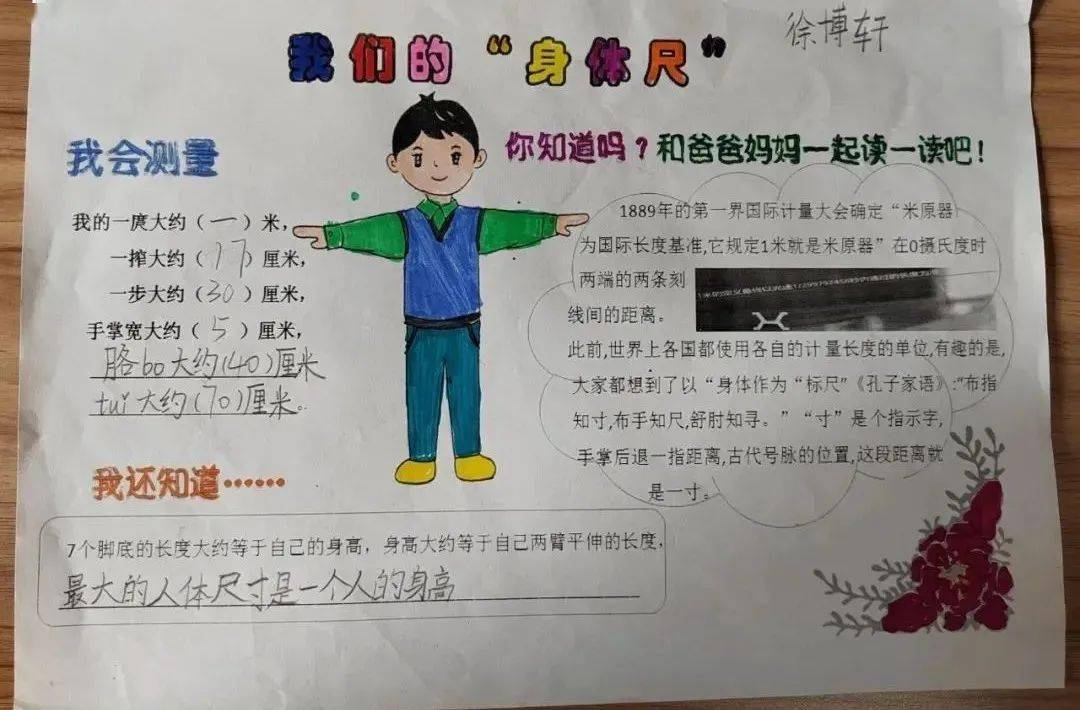 我们的“身体尺”
徐博轩
我会测量
我的一庹大约（一）米，
一拃大约（17）厘米，
一步大约（30）厘米，
手掌宽大约（5）厘米，
胳bo大约(40)厘米
tui大约(70)厘米。
你知道吗？和爸爸妈妈一起读一读吧！
1889年的第一界国际计量大会确定“米原器
为国际长度基准,它规定1米就是米原器”在0摄氏度时
两端的两条刻
线间的距离。
此前,世界上各国都使用各自的计量长度的单位,有趣的是,
大家都想到了以“身体作为“标尺”《孔子家语》:“布指
知寸,布手知尺,舒肘知寻。”“寸”是个指示字,
手掌后退一指距离,古代号脉的位置,这段距离就
是一寸。
我还知道……
7个脚底的长度大约等于自己的身高，身高大约等于自己两臂平伸的长度，
最大的人体尺寸是一个人的身高